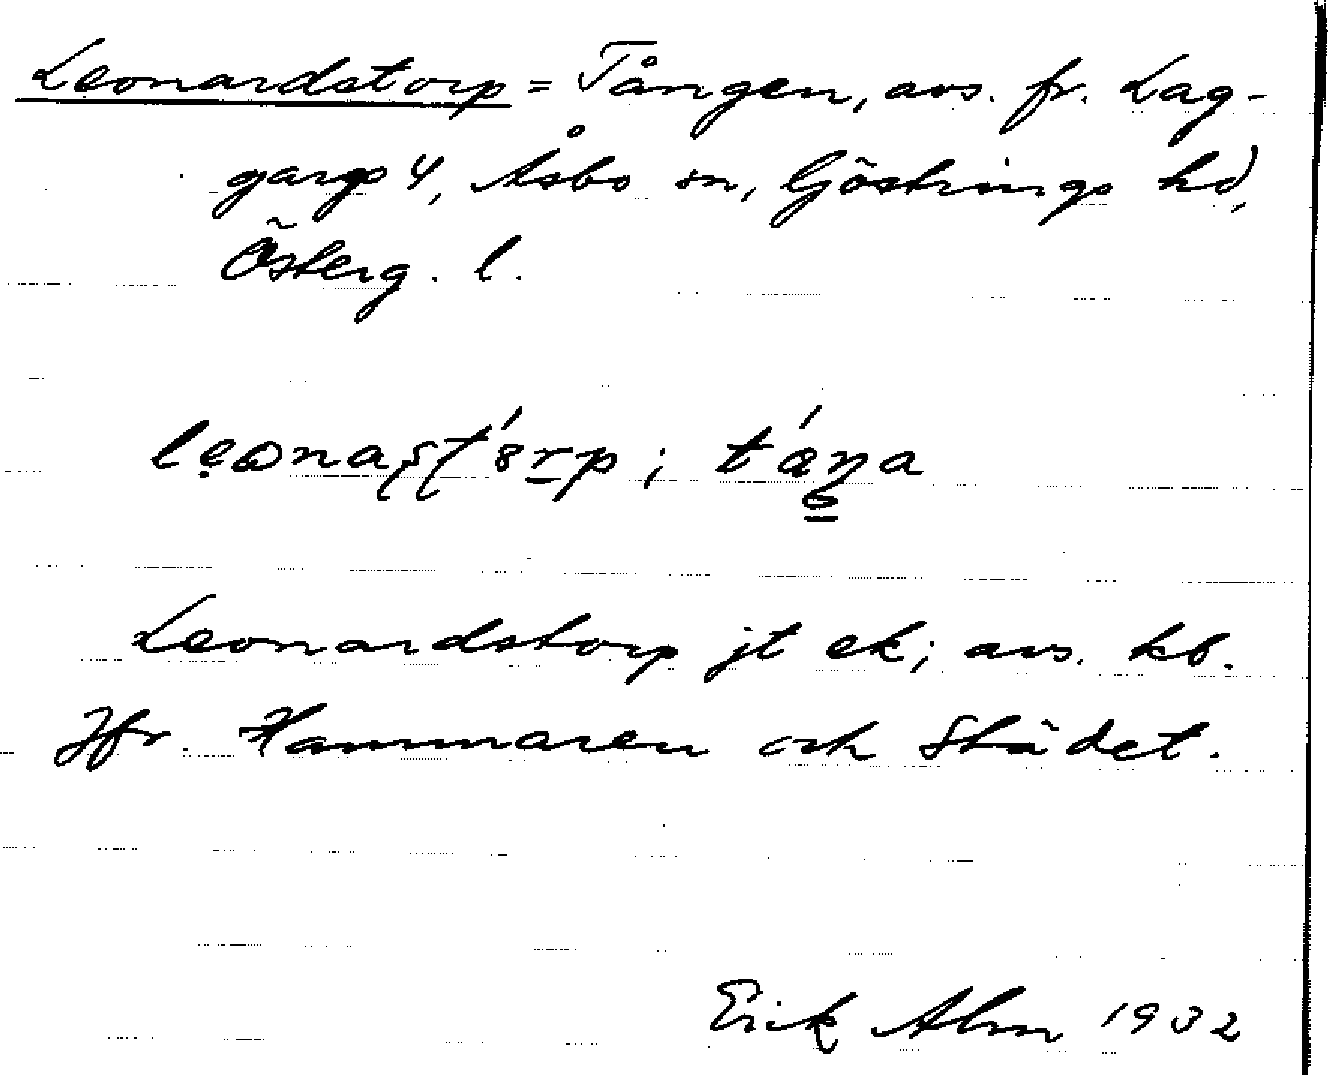 Leonardstorp = Tången, avs. fr. Lag-
garp 4, Åsbo sn, Göstrings hd,
Österg. l.
Leonardstorp jt ek; avs. kb.
Jfr Hammaren och Städet.
Erik Alm 1932